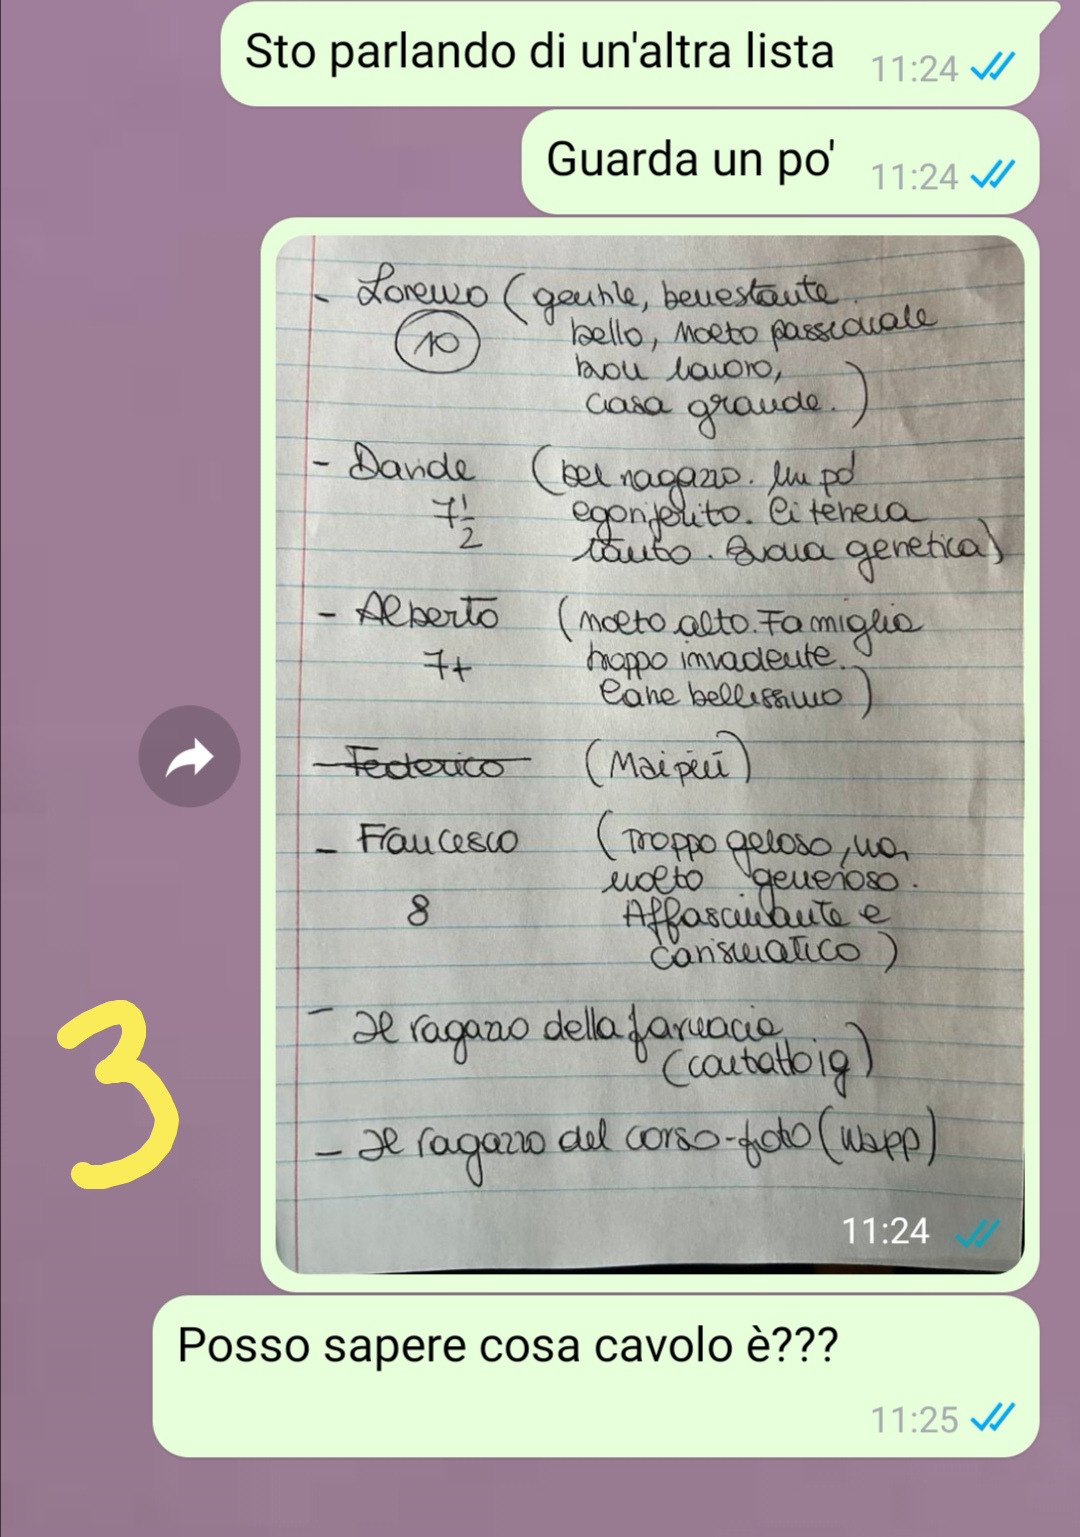 Sto parlando di un'altra lista 11:24
Guarda un po' 11:24
- Lorenzo (gentile, benestante
10 bello, molto passionale
buon lavoro,
casa grande.)
- Davide (bel ragazzo. Un po'
7 1/2 egoriferito. Ci teneva
tanto. Buona genetica)
- Alberto (molto alto. Famiglia
7+ troppo invadente.
Cane bellissimo)
- Federico (Mai più)
- Francesco (Troppo geloso, ma
molto generoso.
8 Affascinante e
carismatico)
- Il ragazzo della farmacia
(contatto ig)
- Il ragazzo del corso-foto (Wapp)
3
11:24
Posso sapere cosa cavolo è???
11:25